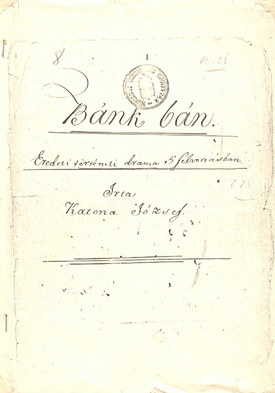 8
Bánk bán.
Eredeti történeti dráma 5 felvonásban
Irta
Katona József.